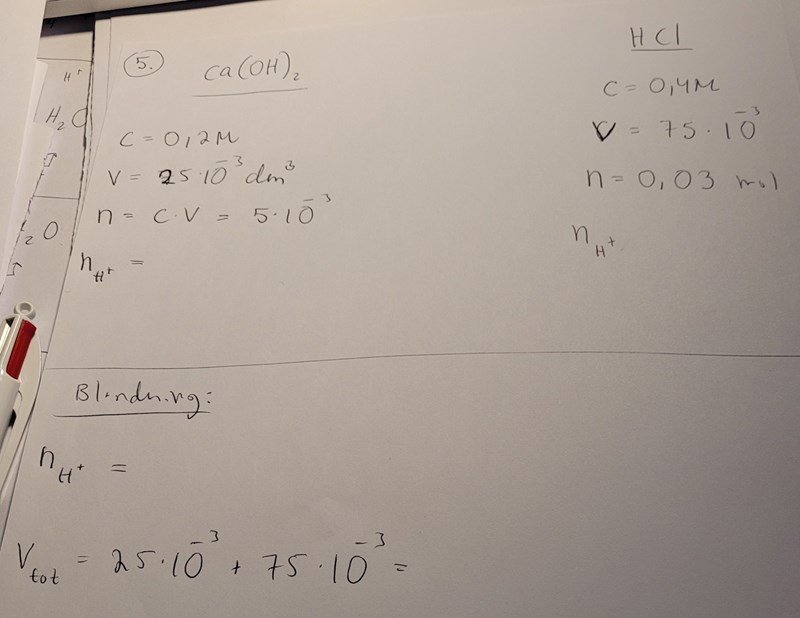 H⁺
H₂O
₂O
5.
Ca(OH)₂
C = 0,2M
V = 25·10⁻³ dm³
n = C·V = 5·10⁻³
n_H⁺ =
HCl
C = 0,4M
V = 75·10⁻³
n = 0,03 mol
n_H⁺
Blandning:
n_H⁺ =
V_tot = 25·10⁻³ + 75·10⁻³ =